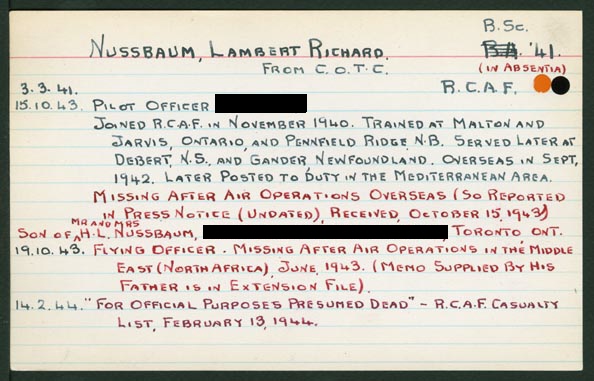 B.Sc.
NUSSBAUM, LAMBERT RICHARD. B.A. '41.
FROM C.O.T.C. (IN ABSENTIA)
3.3.41. R.C.A.F.
15.10.43. PILOT OFFICER
JOINED R.C.A.F. IN NOVEMBER 1940. TRAINED AT MALTON AND
JARVIS, ONTARIO, AND PENNFIELD RIDGE, N.B. SERVED LATER AT
DEBERT, N.S., AND GANDER, NEWFOUNDLAND. OVERSEAS IN SEPT,
1942. LATER POSTED TO DUTY IN THE MEDITERRANEAN AREA.
MISSING AFTER AIR OPERATIONS OVERSEAS (SO REPORTED
IN PRESS NOTICE (UNDATED), RECEIVED, OCTOBER 15, 1943)
SON OF MR AND MRS H.L. NUSSBAUM, , TORONTO ONT.
19.10.43. FLYING OFFICER. MISSING AFTER AIR OPERATIONS IN THE MIDDLE
EAST (NORTH AFRICA), JUNE, 1943. (MEMO SUPPLIED BY HIS
FATHER IS IN EXTENSION FILE).
14.2.44. "FOR OFFICIAL PURPOSES PRESUMED DEAD" - R.C.A.F. CASUALTY
LIST, FEBRUARY 13, 1944.